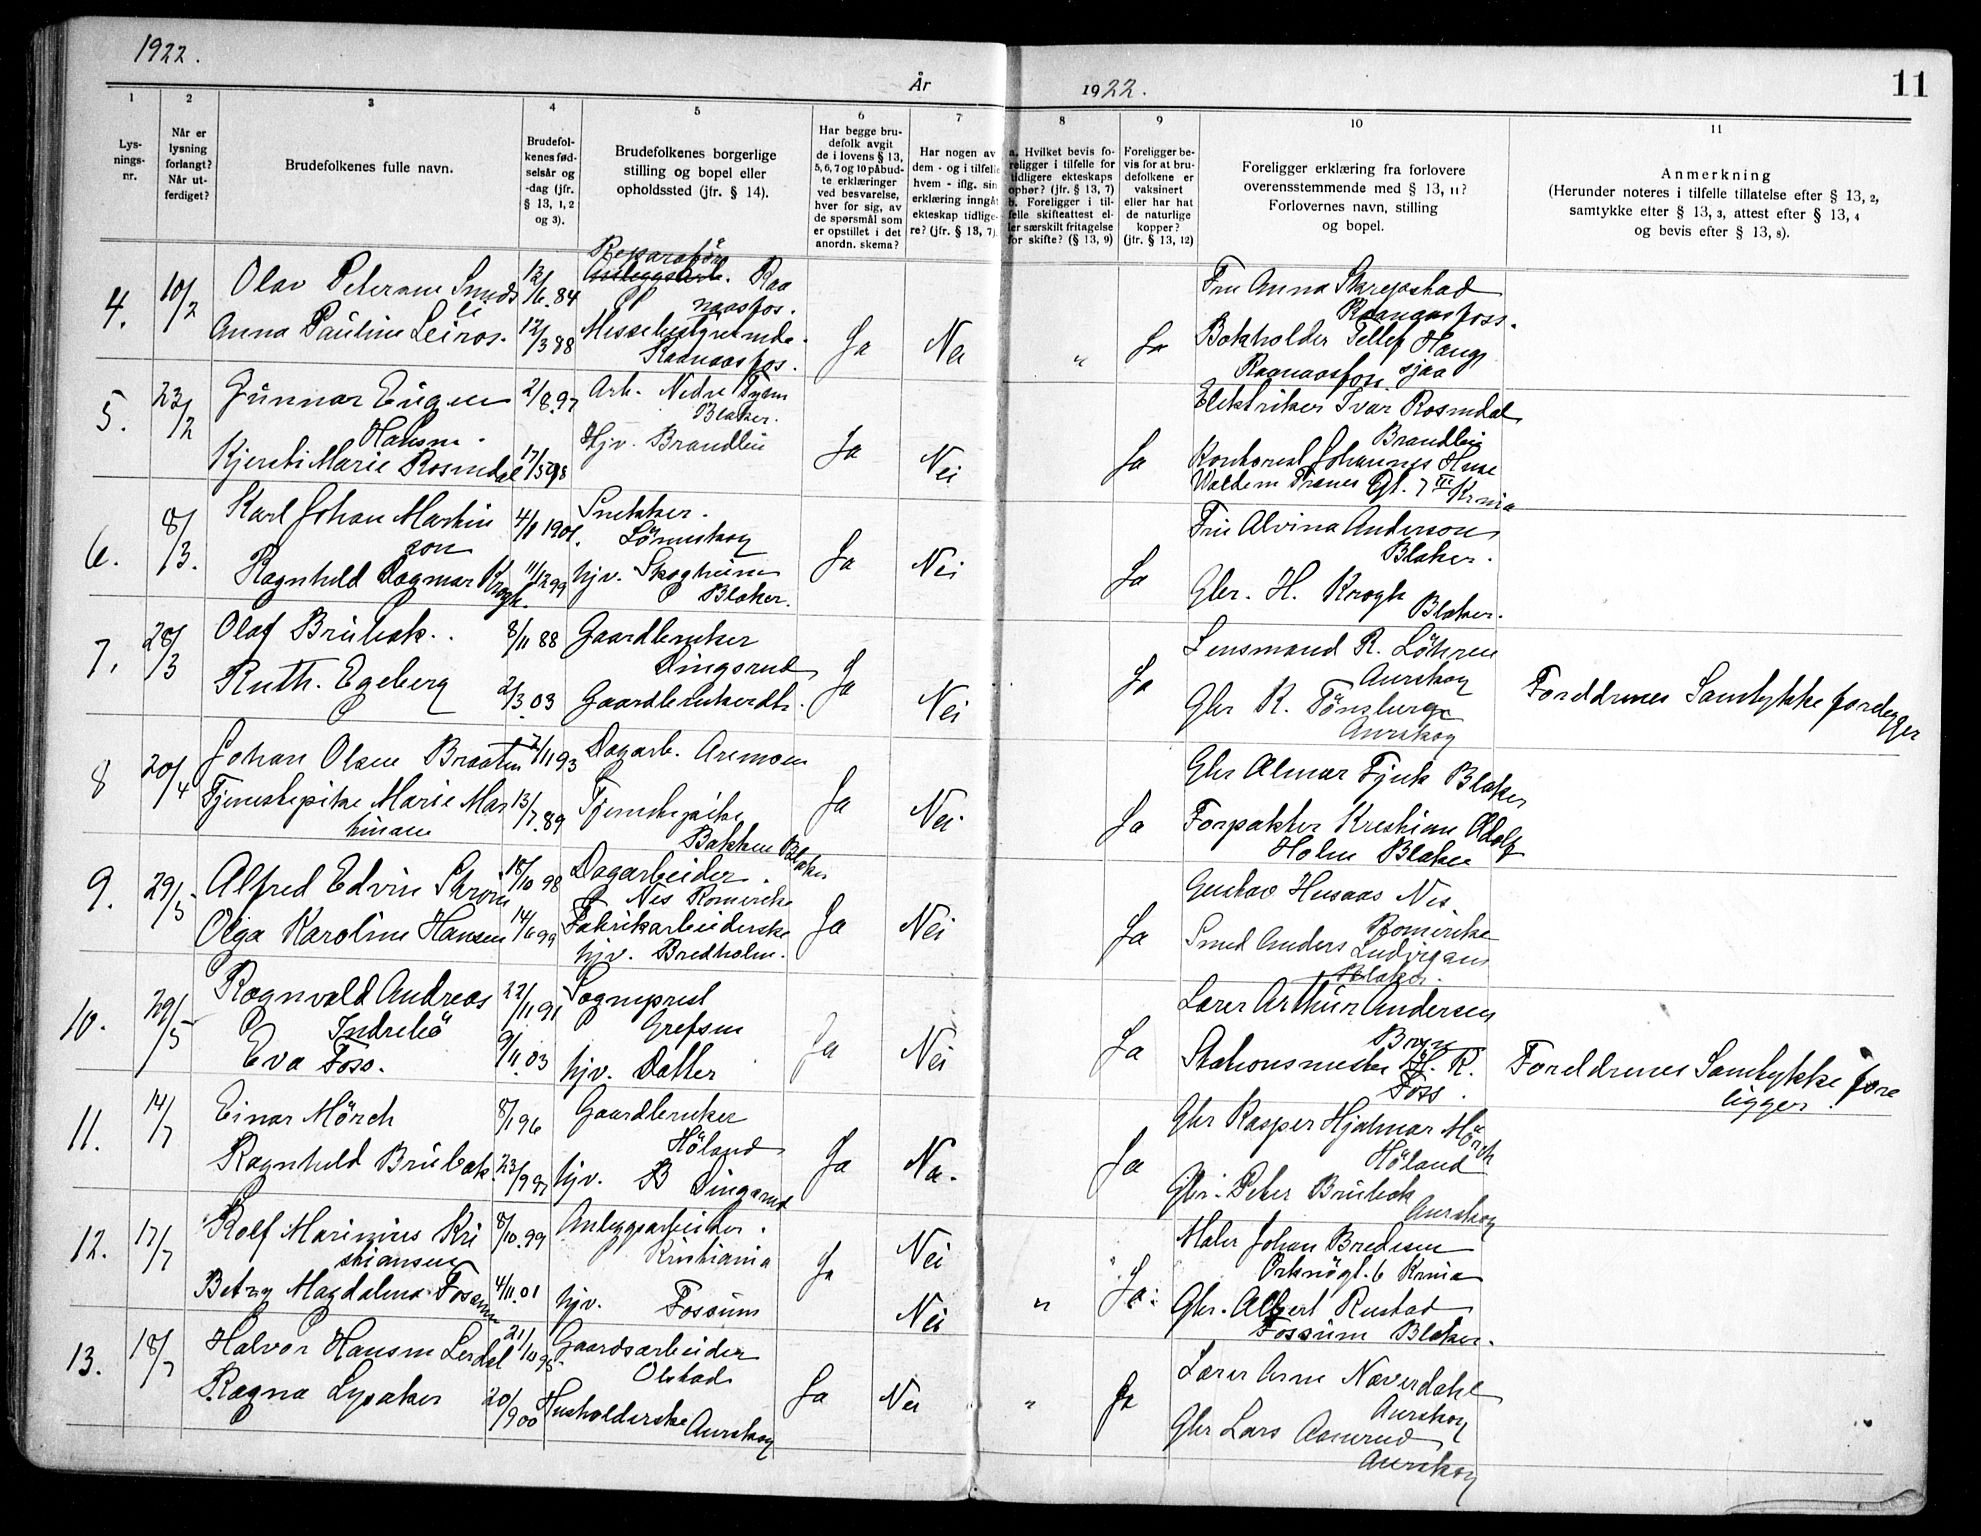 1922.
År
1922.
11
1
2
3
4
5
6
7
8
9
10
11
Lys-
nings-
nr.
Når er
lysning
forlangt?
Når ut-
ferdiget?
Brudefolkenes fulle navn.
Brudefol-
kenes fød-
selsår og
-dag (jfr.
§ 13, 1, 2
og 3).
Brudefolkenes borgerlige
stilling og bopel eller
opholdssted (jfr. § 14).
Har begge bru-
defolk avgit
de i lovens § 13,
5, 6, 7 og 10 påbud-
te erklæringer
ved besvarelse,
hver for sig, av
de spørsmål som
er opstillet i det
anordn. skema?
Har nogen av
dem - og i tilfelle
hvem - iflg. sin
erklæring inngåt
ekteskap tidlige-
re? (jfr. § 13, 7)
a. Hvilket bevis fo-
religger i tilfelle for
tidligere ekteskaps
ophør? (jfr. § 13, 7)
b. Foreligger i til-
felle skifteattest el-
ler særskilt fritagelse
for skifte? (§ 13, 9)
Foreligger be-
vis for at bru-
defolkene er
vaksinert
eller har hat
de naturlige
kopper?
(jfr. § 13, 12)
Foreligger erklæring fra forlovere
overensstemmende med § 13, 11?
Forlovernes navn, stilling
og bopel.
Anmerkning
(Herunder noteres i tilfelle tillatelse efter § 13, 2,
samtykke efter § 13, 3, attest efter § 13, 4
og bevis efter § 13, 8).
4. 10/2 Olav 12/6 84 Reparatör Raa
naasfos.
Anna Pauline Leiros. 12/3 88
Raanaasfos.
Ja Nei " Ja
Fru Anna Skrepstad
Raanaasfoss.
Bokholder Tellef Haug
sjaa
Raanaasfoss
5. 23/2 Gunnar Eugen 2/8.97 Arb. Nedre
Hansen. Blaker.
Kjersti Marie Rosendal 17/5 98 Hjv. Brandlin
Ja Nei Ja
Elektriker Ivar Rosendal
Brandlin
Kontorist Johannes
Gt. 7 III Krnia
6. 8/3. Karl Johan Martin 4/11 1901. Snekker.
sen Lörenskog
Ragnhild Dagmar Krogh. 11/12 99 hjv. Skogheim
Blaker.
Ja Nei Ja
Fru Alvina Anderson
Blaker.
Gbr. H. Krogh
Blaker.
7. 28/3 Olaf Brubak. 8/11 88 Gaardbruker
Dingsrud
Ruth. Egeberg 2/3.03 Gaardbrukerdtr.
Ja Nei Ja
Lensmand R. Löhren
Aurskog
Gbr K. Tönsberg
Aurskog
Foreldrenes Samtykke foreligger
8 20/4 Johan Olsen Braaten /11 93 Dagarb. Aremoen
Tjenestepike Marie Mar 13/7.89 Tjenestepike
tinsen Bakken Blaker
Ja Nei Ja
Gbr Blaker
Forpakter Kristian Adolf
Holm Blaker
9. 29/5 Alfred Edvin 18/10 98 Dagarbeider.
Nes Romerike
Olga Karoline Hansen 14/6 99 Fabrikarbeiderske
hjv. Bredholm.
Ja Nei Ja
Gustav Husaas Nes
Romerike
Smed Anders Ludvigsen
Blaker.
10. 29/5 Ragnvald Andreas 22/11 91 Sogneprest
Indrebö Grefsen
Eva Foss. 9/11.03 hjv. Datter
Ja Nei Ja
Lærer Arthur Andersen
Bryn
Stationsmester H. R.
Foss.
Foreldrenes Samtykke fore
ligger.
11. 14/7 Einar Mörch 8/1 96 Gaardbruker
Höland
Ragnhild Brubak. 23/9 97 hjv. B Dingsrud
Ja Nei. Ja
Gbr Kasper Hjalmar Mörch
Höland
Gbr. Peter Brubak
Aurskog
12. 17/7 Rolf Marinius Kri 8/10.99 Anlægsarbeider.
stiansen Kristiania
Betzy Magdalena Fossum 4/11.01 hjv. Fossum
Ja Nei
Nei " Ja.
Maler Johan Bredesen
Orknögt. 6 Krnia
Gbr. Albert Rustad
Fossum Blaker.
13. 18/7 Halvor Hansen Lerdal 21/10 95 Gaardsarbeider
Olstad
Ragna Lysaker 20/9 00 Husholderske Aurskog
Ja Nei " Ja
Lærer Arne Naverdahl
Aurskog
Gbr Lars Aamerud
Aurskog